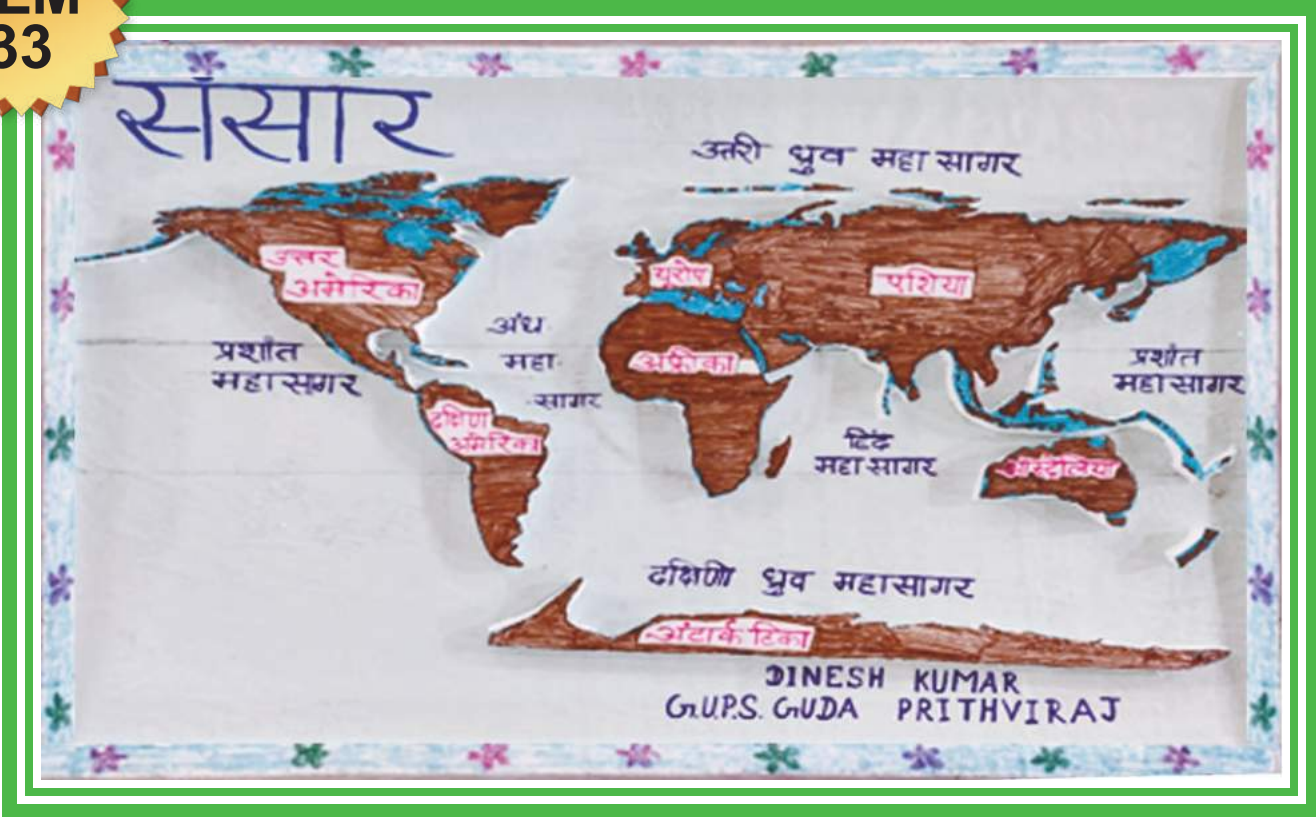 33
संसार
उत्तरी ध्रुव महा सागर
उत्तर
अमेरिका
युरोप
एशिया
अंध
महा
सागर
प्रशांत
महासागर
अफ्रीका
प्रशांत
महासागर
दक्षिण
अमेरिका
हिंद
महासागर
ऑस्ट्रेलिया
दक्षिणि ध्रुव महासागर
अंटार्कटिका
DINESH KUMAR
G.U.P.S. GUDA PRITHVIRAJ